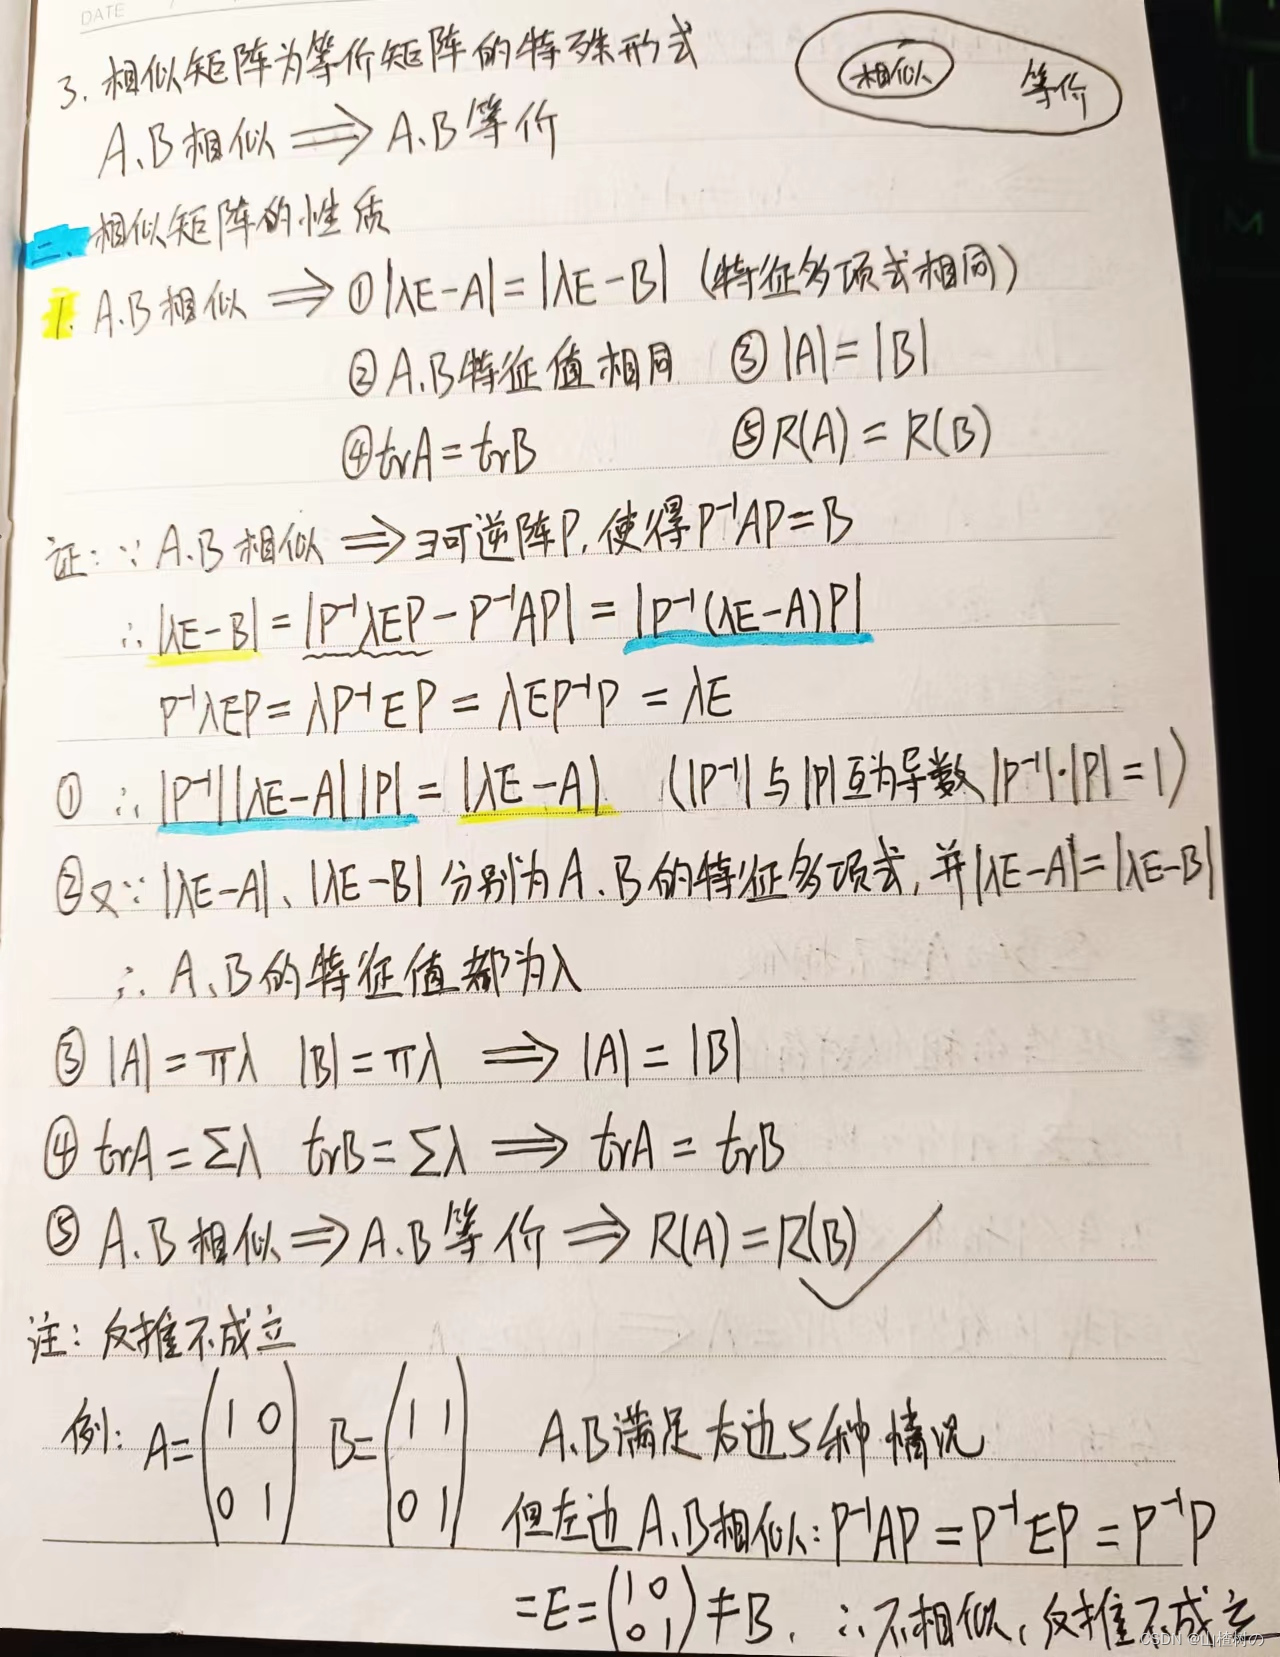 DATE
3. 相似矩阵为等价矩阵的特殊形式
相似 等价
A、B相似 ⟹ A、B等价
二、相似矩阵的性质
1. A、B相似 ⟹ ①|λE-A|=|λE-B| (特征多项式相同)
②A、B特征值相同 ③|A|=|B|
④trA=trB ⑤R(A)=R(B)
证:∵A、B相似 ⟹ ∃可逆阵P,使得P⁻¹AP=B
∴|λE-B|=|P⁻¹λEP-P⁻¹AP|=|P⁻¹(λE-A)P|
P⁻¹λEP=λP⁻¹EP=λEP⁻¹P=λE
① ∴|P⁻¹||λE-A||P|=|λE-A| (|P⁻¹|与|P|互为导数|P⁻¹|·|P|=1)
②又∵|λE-A|、|λE-B|分别为A、B的特征多项式,并|λE-A|=|λE-B|
∴A、B的特征值都为λ
③|A|=πλ |B|=πλ ⟹ |A|=|B|
④trA=Σλ trB=Σλ ⟹ trA=trB
⑤A、B相似⟹A、B等价⟹R(A)=R(B)
注:反推不成立
例:A=(1 0 B=(1 1 A、B满足右边5种情况
0 1) 0 1) 但左边A、B相似:P⁻¹AP=P⁻¹EP=P⁻¹P
=E=(1 0
0 1)≠B, ∴不相似,反推不成立
CSDN @山楂树の